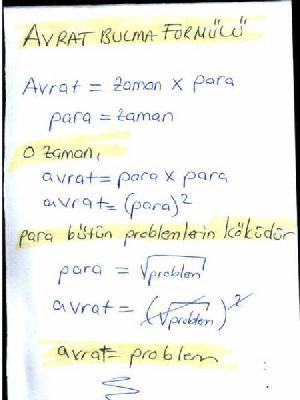 AVRAT BULMA FORMÜLÜ
Avrat = zaman x para
para = zaman
O zaman,
avrat = para x para
avrat = (para)²
para bütün problemlerin köküdür
para = √problem
avrat = (√problem)²
avrat = problem